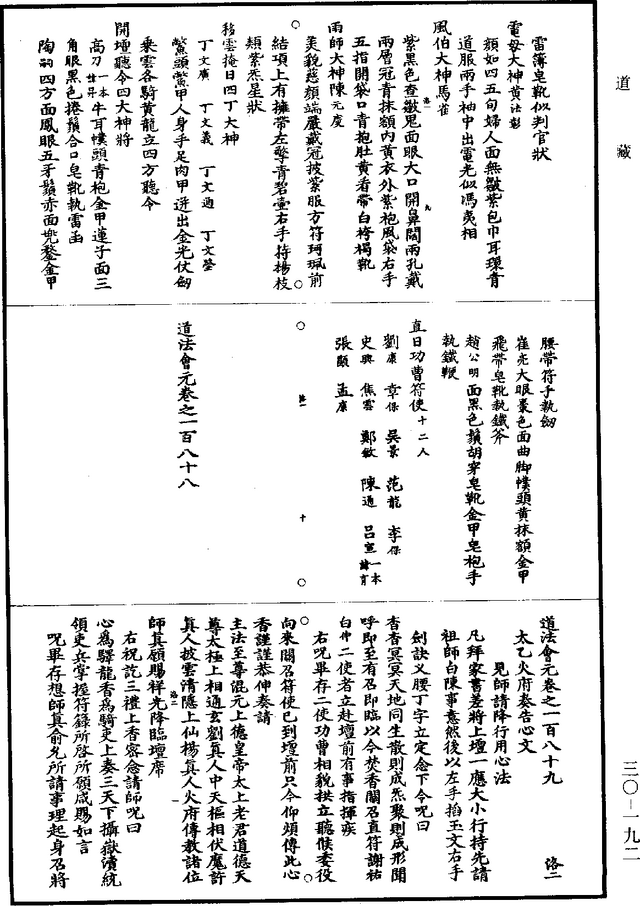 道藏
雷簿皂靴似判官狀
電母大神黃法彰
顏如四五旬婦人面無皺紫包巾耳環青
道服兩手袖中出電光似馮夷相
風伯大神馬雀
紫黑色査皺鬼面眼大口開鼻闊兩孔戴
兩層冠青抹額內黃衣外紫袍風袋右手
五指開袋口青抱肚黃看帶白袴褐靴
雨師大神陳元度
美貌慈顏端嚴戴冠披紫服方符珂珮前
結項上有擁帶左擎青碧壺右手持楊枝
類紫炁星狀
移雲掩日四丁大神
丁文廣 丁文義 丁文通 丁文瑩
鱉頭鱉甲人身手足肉甲迸出金光仗劒
乘雲各騎黃龍立四方聽令
開壇聽令四大神將
高刀一本牛耳幞頭青袍金甲蓮子面三
角眼黑色捲鬚合口皂靴執雷函
陶四方面鳳眼五牙鬚赤面兜鍪金甲
腰帶符手執劒
崔亮大眼棗色面曲脚幞頭黃抹額金甲
飛帶皂靴執鐵斧
趙公明面黑色鬚胡穿皂靴金甲皂袍手
執鐵鞭
直日功曹符使十二人
劉康 章保 吳景 范龍 李保
史興 焦雲 鄭敏 陳通 呂宣一本
張顯 孟康
道法會元卷之一百八十八
洛一 十
道法會元卷之一百八十九 洛二
太乙火府奏告心文
見師請降行用心法
凡拜家書差將上壇一應大小行持先請
祖師白陳事意然後以左手掐玉文右手
劍訣叉腰丁字立定念下令呪曰
杳杳冥冥天地同生散則成炁聚則成形聞
呼即至有召即臨以今焚香關召直符謝祐
白仲二使者立赴壇前有事指揮疾
右呪畢存二使功曹相貌拱立聽候委役
向來關召符使已到壇前只今仰煩傳此心
香謹謹恭伸奏請
主法至尊混元上德皇帝太上老君道德天
尊太極上相通玄劉真人中天樞相伏魔許
真人披雲清隱上仙楊真人火府傳教諸位
師真願賜祥光降臨壇席
右祝訖三禮上香密念請師呪曰
心為驛龍香為騎吏上奏三天下攝嶽瀆統
領吏兵掌握符籙所啓所願咸賜如言
呪畢存想師真俞允所請事理起身召將
三〇－一九二